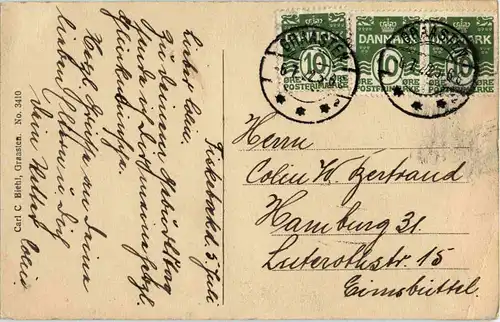 Lieber Colin.
Fiskebæk d. 5 Juli
Zu Deinem Geburtstag
sende ich Dir meine herzl.
Glückwünsche.
Herzl. Grüsse an Deine
lieben Eltern u. Dich
Dein Vetter
Carl C. Biehl, Graasten. No. 3410
GRAASTEN
DANMARK
10 10 10
ØRE ØRE ØRE
POSTFRIMÆRKE POSTFRIMÆRKE POSTFRIMÆRKE
Herrn
Colin W. Bertrand
Hamburg 31.
Luterothstr. 15
Eimsbüttel.